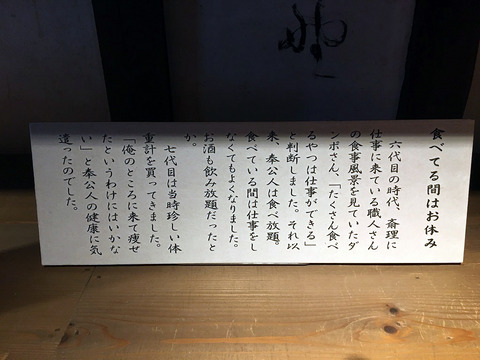 食べてる間はお休み
六代目の時代、斎理に
仕事に来ている職人さん
の食事風景を見ていたダ
ンポさん、「たくさん食べ
るやつは仕事ができる」
と判断しました。それ以
来、奉公人は食べ放題。
食べている間は仕事をし
なくてもよくなりました。
お酒も飲み放題だったと
か。
七代目は当時珍しい体
重計を買ってきました。
「俺のところに来て痩せ
たというわけにはいかな
い」と奉公人の健康に気
遣ったのでした。